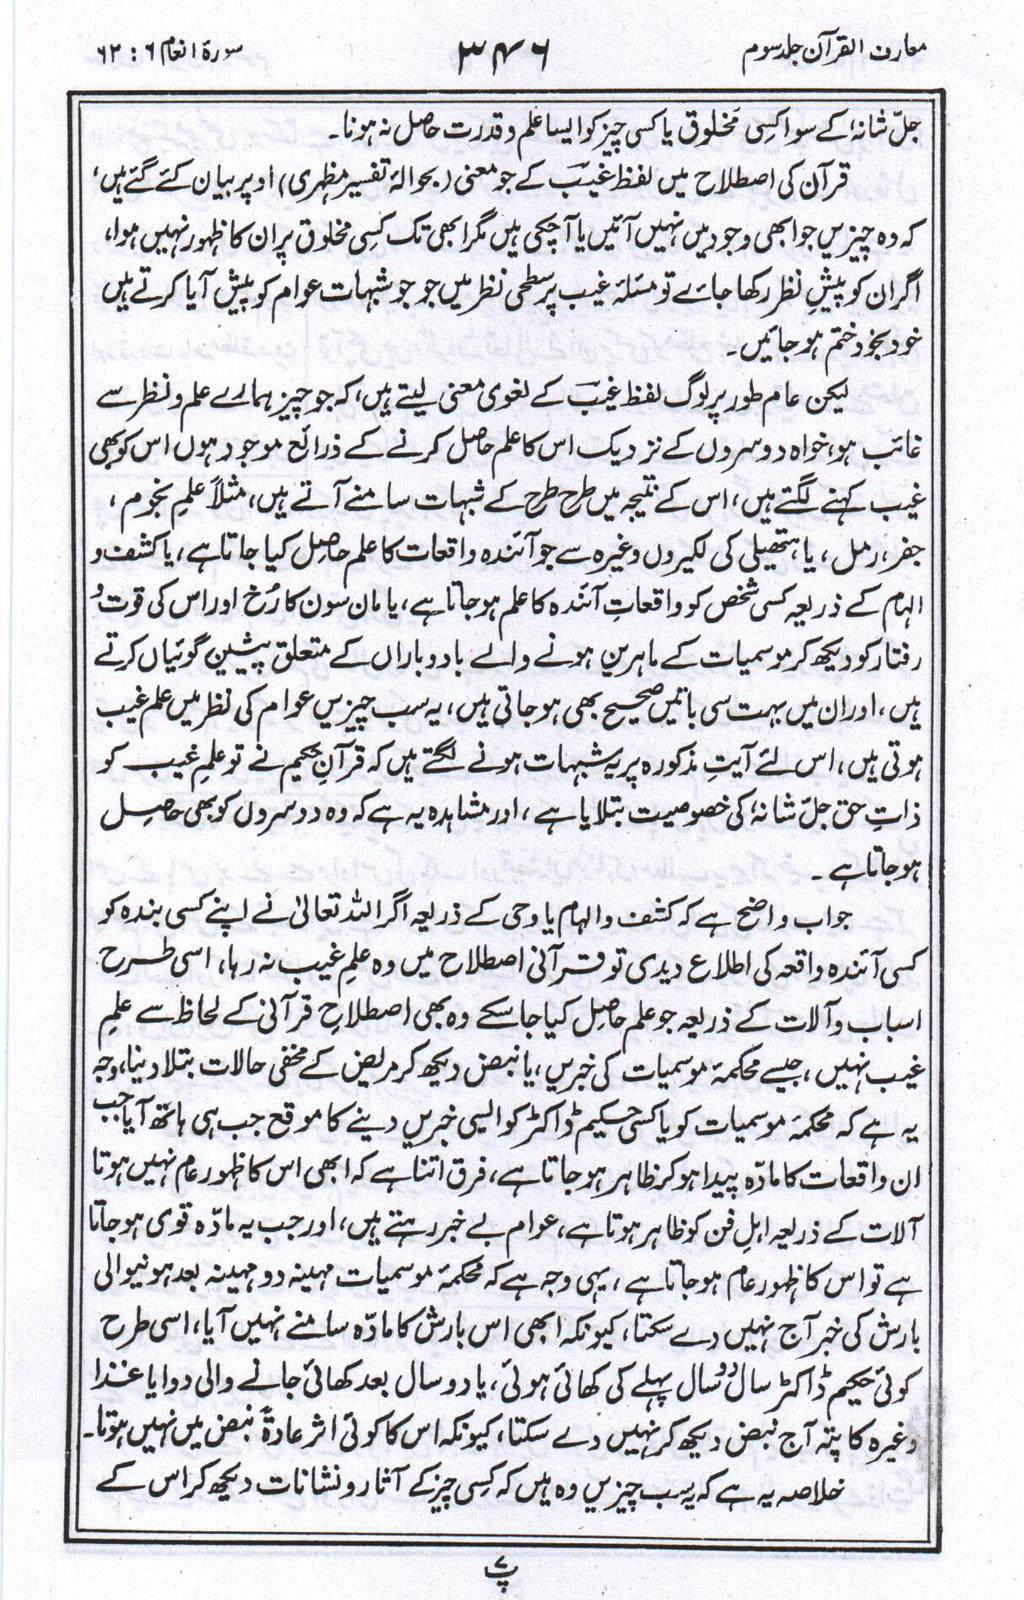 معارف القرآن جلد سوم
۳۴۶
سورۃ انعام ۶ : ۶۲
جلّ شانہٗ کے سوا کسی مخلوق یا کسی چیز کو ایسا علم و قدرت حاصل نہ ہونا۔
قرآن کی اصطلاح میں لفظ غیب کے جو معنی (بحوالہ تفسیر مظہری) اوپر بیان کئے گئے ہیں،
کہ وہ چیزیں جو ابھی وجود میں نہیں آئیں یا آچکی ہیں مگر ابھی تک کسی مخلوق پر ان کا ظہور نہیں ہوا،
اگر ان کو پیشِ نظر رکھا جائے تو مسئلہ غیب پر سطحی نظر میں جو جو شبہات عوام کو پیش آیا کرتے ہیں
خود بخود ختم ہو جائیں۔
لیکن عام طور پر لوگ لفظ غیب کے لغوی معنی لیتے ہیں، کہ جو چیز ہمارے علم و نظر سے
غائب ہو، خواہ دوسروں کے نزدیک اس کا علم حاصل کرنے کے ذرائع موجود ہوں اس کو بھی
غیب کہنے لگتے ہیں، اس کے نتیجہ میں طرح طرح کے شبہات سامنے آتے ہیں، مثلاً علمِ نجوم،
جفر، رمل، یا ہتھیلی کی لکیروں وغیرہ سے جو آئندہ واقعات کا علم حاصل کیا جاتا ہے، یا کشف و
الہام کے ذریعہ کسی شخص کو واقعاتِ آئندہ کا علم ہو جاتا ہے، یا مان سون کا رُخ اور اس کی قوت و
رفتار کو دیکھ کر موسمیات کے ماہرین ہونے والے باد و باراں کے متعلق پیشین گوئیاں کرتے
ہیں، اور ان میں بہت سی باتیں صحیح بھی ہو جاتی ہیں، یہ سب چیزیں عوام کی نظر میں علم غیب
ہوتی ہیں، اس لئے آیتِ مذکورہ پر یہ شبہات ہونے لگتے ہیں کہ قرآنِ حکیم نے تو علمِ غیب کو
ذاتِ حق جلّ شانہٗ کی خصوصیت بتلایا ہے، اور مشاہدہ یہ ہے کہ وہ دوسروں کو بھی حاصل
ہو جاتا ہے۔
جواب واضح ہے کہ کشف و الہام یا وحی کے ذریعہ اگر اللہ تعالیٰ نے اپنے کسی بندہ کو
کسی آئندہ واقعہ کی اطلاع دیدی تو قرآنی اصطلاح میں وہ علمِ غیب نہ رہا، اسی طرح
اسباب و آلات کے ذریعہ جو علم حاصل کیا جا سکے وہ بھی اصطلاحِ قرآنی کے لحاظ سے علمِ
غیب نہیں، جیسے محکمۂ موسمیات کی خبریں، یا نبض دیکھ کر مریض کے مخفی حالات بتلا دینا، وجہ
یہ ہے کہ محکمۂ موسمیات کو یا کسی حکیم ڈاکٹر کو ایسی خبریں دینے کا موقع جب ہی ہاتھ آیا جب
ان واقعات کا مادّہ پیدا ہو کر ظاہر ہو جاتا ہے، فرق اتنا ہے کہ ابھی اس کا ظہور عام نہیں ہوتا
آلات کے ذریعہ اہلِ فن کو ظاہر ہوتا ہے، عوام بے خبر رہتے ہیں، اور جب یہ مادّہ قوی ہو جاتا
ہے تو اس کا ظہور عام ہو جاتا ہے، یہی وجہ ہے کہ محکمۂ موسمیات مہینہ دو مہینہ بعد ہونیوالی
بارش کی خبر آج نہیں دے سکتا، کیونکہ ابھی اس بارش کا مادّہ سامنے نہیں آیا، اسی طرح
کوئی حکیم ڈاکٹر سال دو سال پہلے کی کھائی ہوئی، یا دو سال بعد کھائی جانے والی دوا یا غذا
وغیرہ کا پتہ آج نبض دیکھ کر نہیں دے سکتا، کیونکہ اس کا کوئی اثر عادۃً نبض میں نہیں ہوتا۔
خلاصہ یہ ہے کہ یہ سب چیزیں وہ ہیں کہ کسی چیز کے آثار و نشانات دیکھ کر اس کے